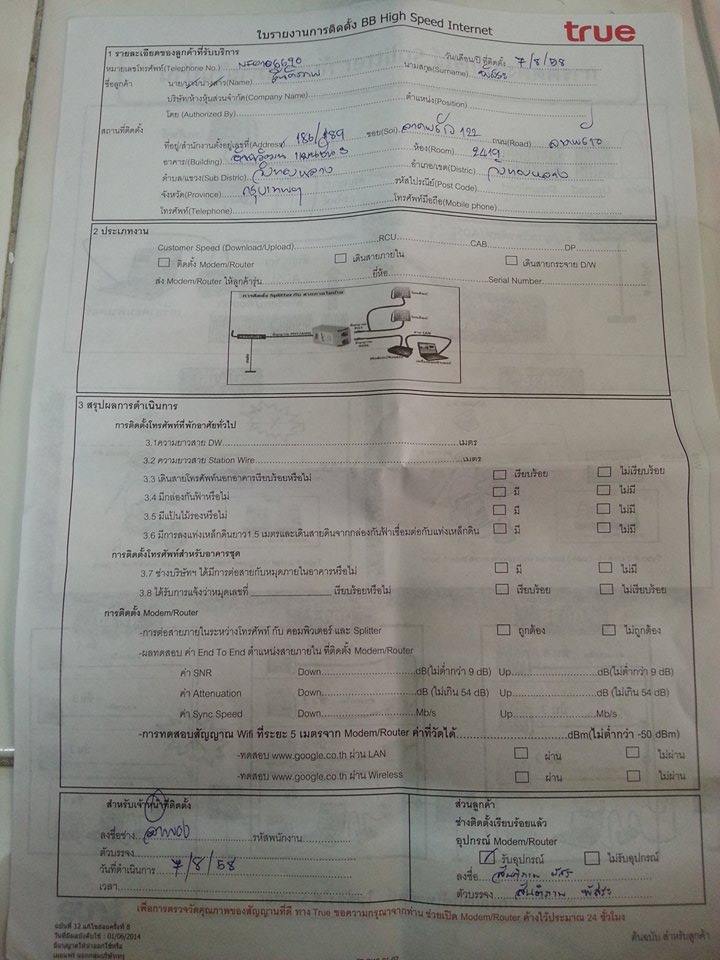 ใบรายงานการติดตั้ง BB High Speed Internet
true
1 รายละเอียดของลูกค้าที่รับบริการ
หมายเลขโทรศัพท์(Telephone No.) วัน/เดือน/ปี ที่ติดตั้ง 7/8/58
ชื่อลูกค้า นาย/นาง/นางสาว(Name) นามสกุล(Surname)
บริษัท/ห้างหุ้นส่วนจำกัด(Company Name) ตำแหน่ง(Position)
โดย (Authorized By)
สถานที่ติดตั้ง
ที่อยู่/สำนักงานตั้งอยู่เลขที่(Address) 186/189 ซอย(Soi) ลาดพร้าว 122 ถนน(Road) ลาดพร้าว
อาคาร/(Building) ห้อง(Room) 2419
ตำบล/แขวง(Sub District) วังทองหลาง อำเภอ/เขต(District) วังทองหลาง
จังหวัด(Province) กรุงเทพฯ รหัสไปรณีย์(Post Code)
โทรศัพท์(Telephone) โทรศัพท์มือถือ(Mobile phone)
2 ประเภทงาน
Customer Speed (Download/Upload) RCU CAB DP
ติดตั้ง Modem/Router เดินสายภายใน เดินสายกระจาย D/W
ส่ง Modem/Router ให้ลูกค้ารุ่น ยี่ห้อ Serial Number
การติดตั้ง Splitter กับ สายภายในบ้าน
3 สรุปผลการดำเนินการ
การติดตั้งโทรศัพท์ที่พักอาศัยทั่วไป
3.1ความยาวสาย DW เมตร
3.2 ความยาวสาย Station Wire เมตร
3.3 เดินสายโทรศัพท์นอกอาคารเรียบร้อยหรือไม่ เรียบร้อย ไม่เรียบร้อย
3.4 มีกล่องกันฟ้าหรือไม่ มี ไม่มี
3.5 มีแป้นไม้รองหรือไม่ มี ไม่มี
3.6 มีการลงแท่งเหล็กดินยาว1.5 เมตรและเดินสายดินจากกล่องกันฟ้าเชื่อมต่อกับแท่งเหล็กดิน มี ไม่มี
การติดตั้งโทรศัพท์สำหรับอาคารชุด
3.7 ช่างบริษัทฯ ได้มีการต่อสายกับหมุดภายในอาคารหรือไม่ มี ไม่มี
3.8 ได้รับการแจ้งว่าหมุดเลขที่ เรียบร้อยหรือไม่ เรียบร้อย ไม่เรียบร้อย
การติดตั้ง Modem/Router
-การต่อสายภายในระหว่างโทรศัพท์ กับ คอมพิวเตอร์ และ Splitter ถูกต้อง ไม่ถูกต้อง
-ผลทดสอบ ค่า End To End ตำแหน่งสายภายใน ที่ติดตั้ง Modem/Router
ค่า SNR Down dB(ไม่ต่ำกว่า 9 dB) Up dB(ไม่ต่ำกว่า 9 dB)
ค่า Attenuation Down dB (ไม่เกิน 54 dB) Up dB (ไม่เกิน 54 dB)
ค่า Sync Speed Down Mb/s Up Mb/s
-การทดสอบสัญญาณ Wifi ที่ระยะ 5 เมตรจาก Modem/Router ค่าที่วัดได้ dBm(ไม่ต่ำกว่า -50 dBm)
-ทดสอบ www.google.co.th ผ่าน LAN ผ่าน ไม่ผ่าน
-ทดสอบ www.google.co.th ผ่าน Wireless ผ่าน ไม่ผ่าน
สำหรับเจ้าหน้าที่ติดตั้ง
ลงชื่อช่าง รหัสพนักงาน
ตัวบรรจง
วันที่ดำเนินการ 7/8/58
เวลา
ส่วนลูกค้า
ช่างติดตั้งเรียบร้อยแล้ว
อุปกรณ์ Modem/Router
รับอุปกรณ์ ไม่รับอุปกรณ์
ลงชื่อ
ตัวบรรจง สันติภาพ พัสระ
เพื่อการตรวจวัดคุณภาพของสัญญานที่ดี ทาง True ขอความกรุณาจากท่าน ช่วยเปิด Modem/Router ค้างไว้ประมาณ 24 ชั่วโมง
ฉบับที่ 12 แก้ไขสอบครั้งที่ 8
วันที่มีผลบังคับใช้ : 01/06/2014
ต้นฉบับ สำหรับลูกค้า